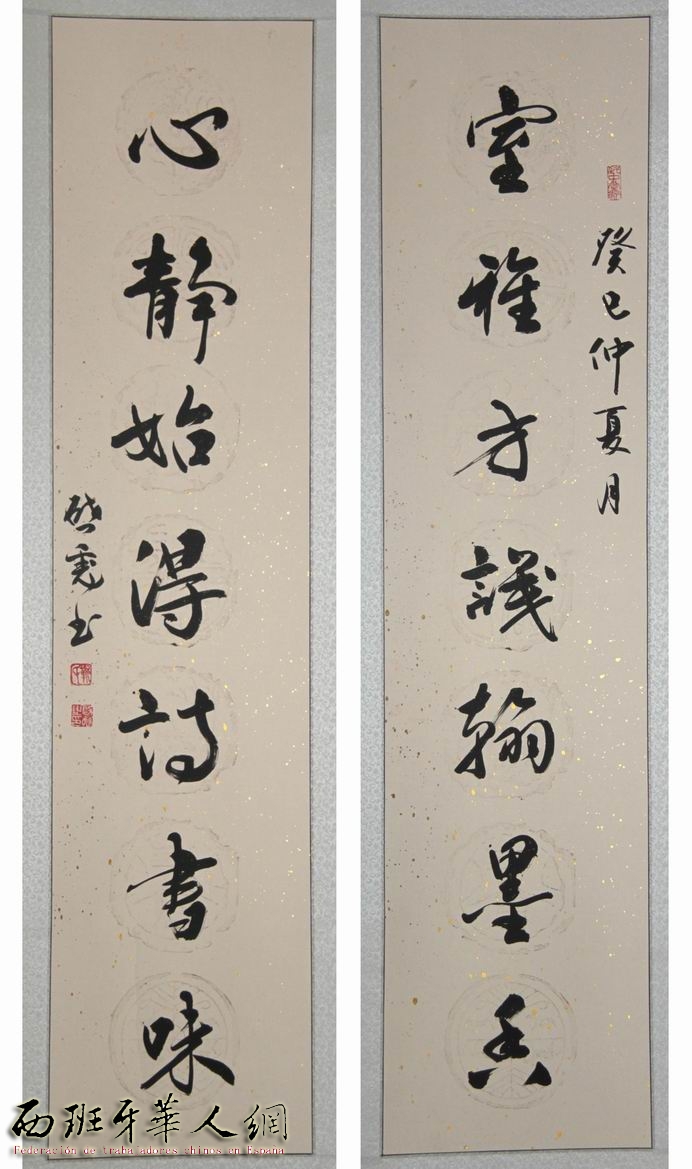 癸巳仲夏月
室雅方識翰墨香
心静始得詩書味
书
西班牙華人網
Federación de trabajadores chinos en Espana